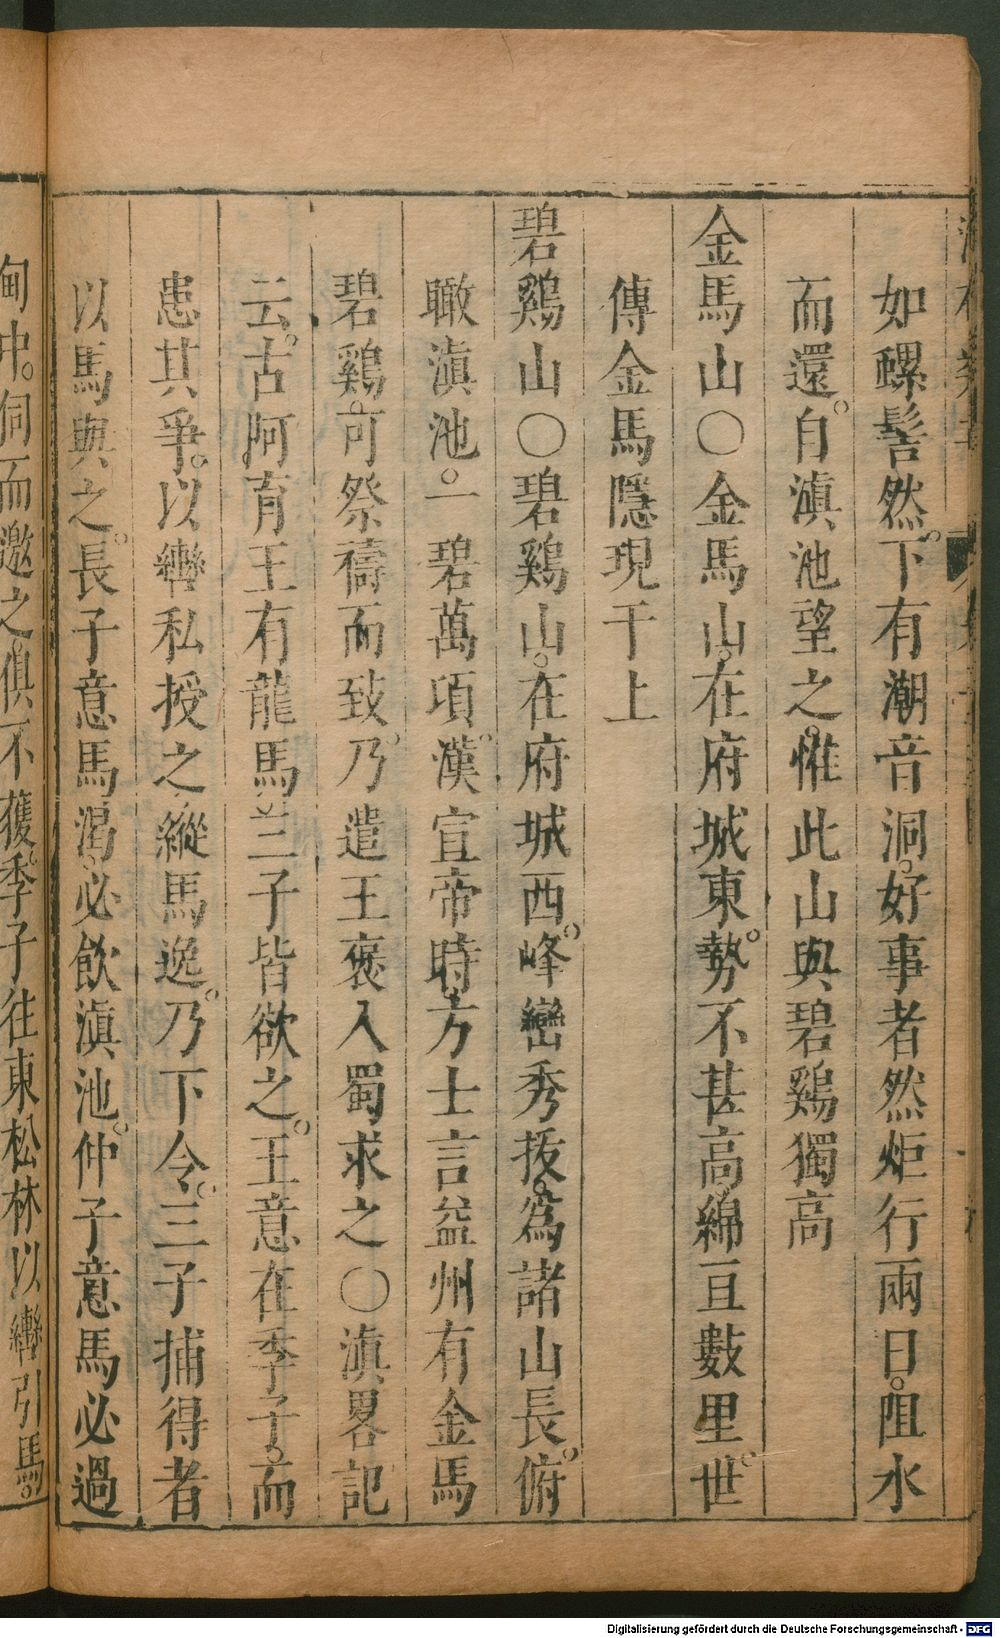 如螺髻然。下有潮音洞。好事者然炬行兩日。阻水
而還。自滇池望之。惟此山與碧鷄獨高
金馬山〇金馬山。在府城東。勢不甚高。綿亘數里。世
傳金馬隱現于上
碧鷄山〇碧鷄山。在府城西。峰巒秀拔。爲諸山長。俯
瞰滇池。一碧萬項。漢宣帝時。方士言益州有金馬
碧鷄。可祭禱而致。乃遣王褒入蜀求之〇滇畧記
云。古阿育王有龍馬。三子皆欲之。王意在季子。而
患其爭。以轡私授之。縱馬逸。乃下令。三子捕得者
以馬與之。長子意馬渴。必飲滇池。仲子意馬必過
甸中。伺而邀之。俱不獲。季子往東松林以轡引馬。
Digitalisierung gefördert durch die Deutsche Forschungsgemeinschaft - DFG